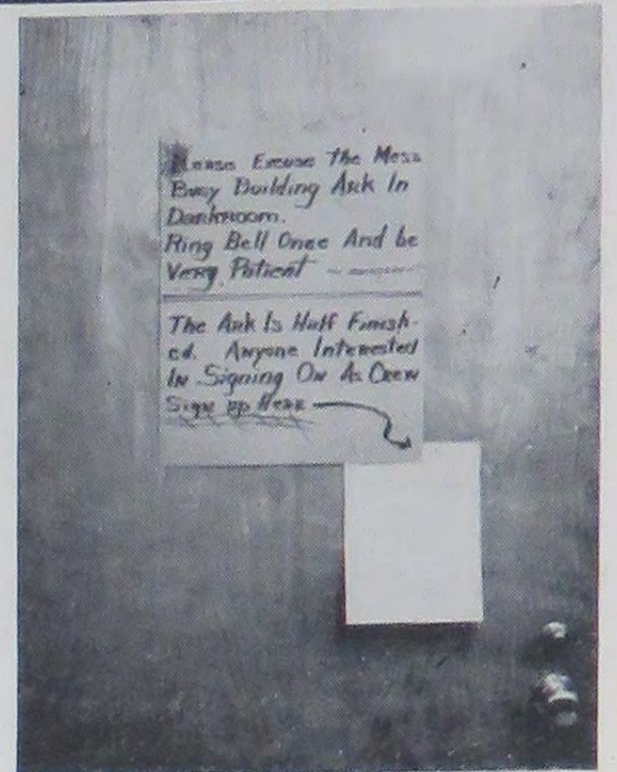 Please Excuse The Mess
Busy Building Ark In
Darkroom.
Ring Bell Once And be
Very Patient
The Ark Is Half Finish-
ed. Anyone Interested
In Signing On As Crew
Sign up Here